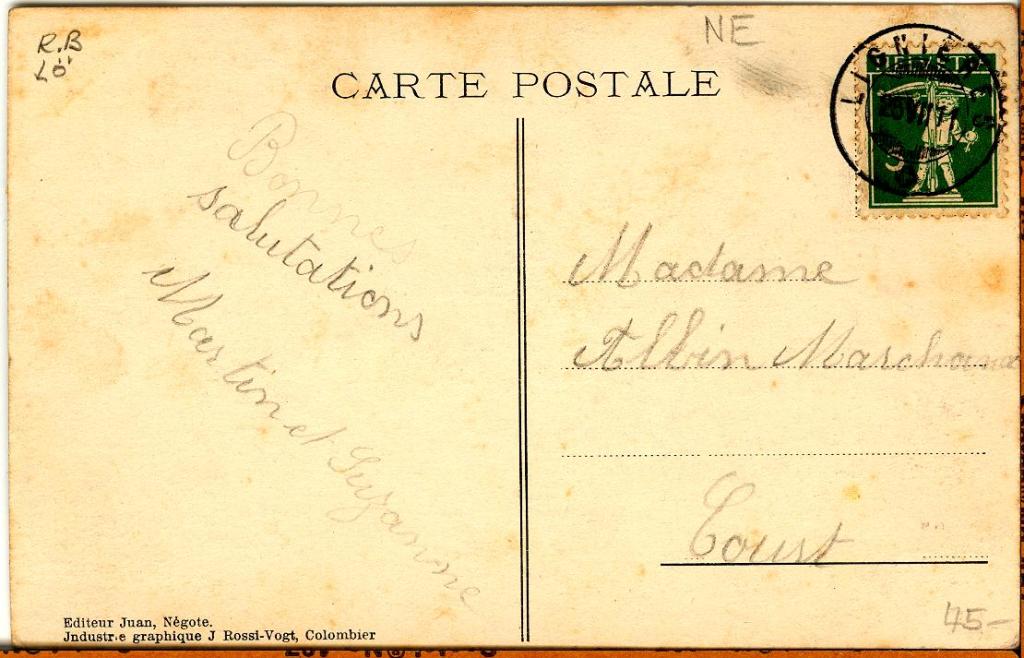 R.B
Lö
NE
CARTE POSTALE
LIGNIÈRES
5
Bonnes
salutations
Martin et Suzanne
Madame
Albin Marchand
Court
45-
Editeur Juan, Négote.
Jndustrie graphique J Rossi-Vogt, Colombier